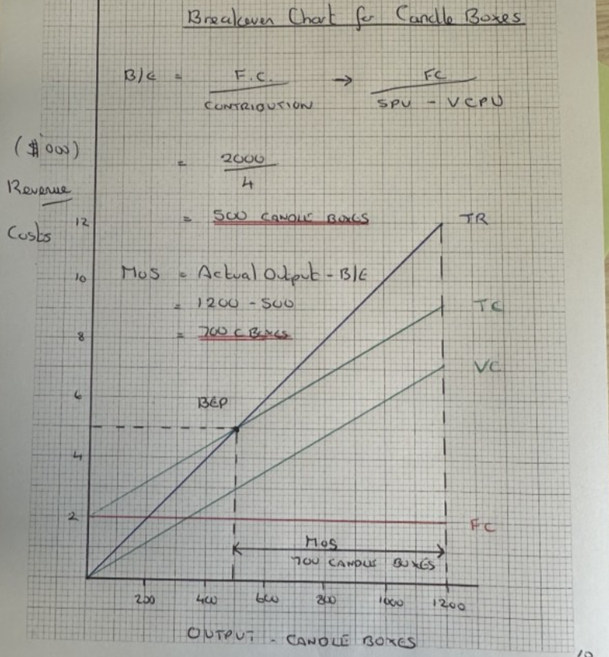 Breakeven Chart for Candle Boxes
B/E = F.C. / CONTRIBUTION → FC / SPU - VCPU
($'000)
= 2000 / 4
Revenue
= 500 CANDLE BOXES
Costs
12
TR
10
MoS = Actual Output - B/E
= 1200 - 500
TC
= 700 C Boxes
8
VC
6
BEP
4
2
FC
MoS
700 CANDLE BOXES
200 400 600 800 1000 1200
OUTPUT - CANDLE BOXES